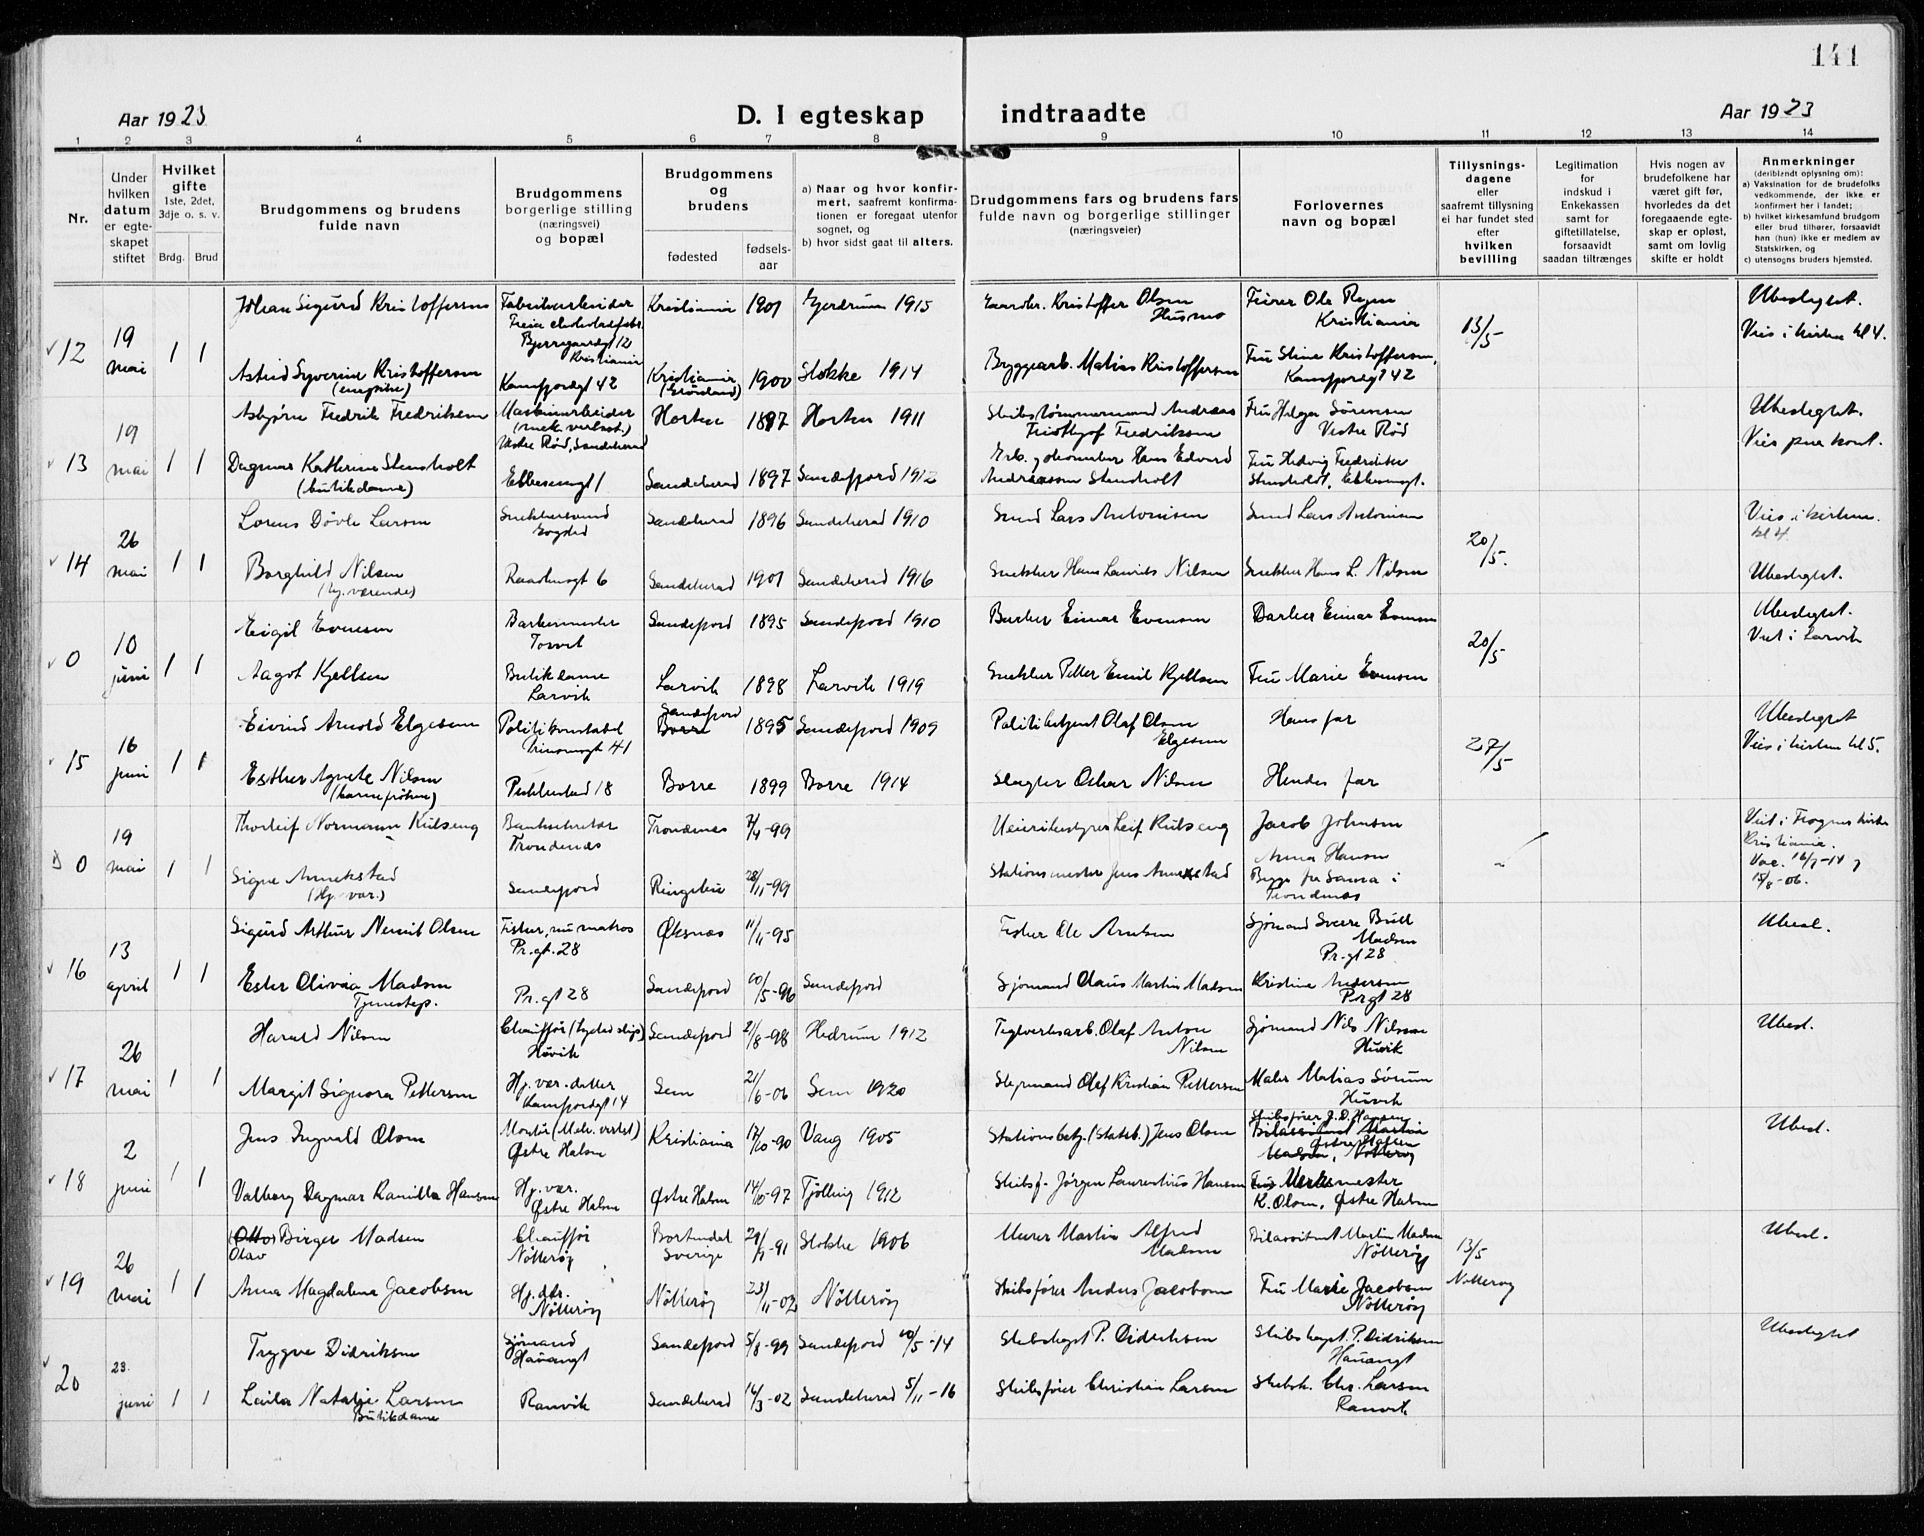 141
Aar 1923
D. I egteskap indtraadte
Aar 1923
1 2 3 4 5 6 7 8 9 10 11 12 13 14
Nr.
Under
hvilken
datum
er egte-
skapet
stiftet
Hvilket
gifte
1ste, 2det,
3dje o. s. v.
Brdg. Brud
Brudgommens og brudens
fulde navn
Brudgommens
borgerlige stilling
(næringsvei)
og bopæl
Brudgommens
og
brudens
fødested
fødsels-
aar
a) Naar og hvor konfir-
mert, saafremt konfirma-
tionen er foregaat utenfor
sognet, og
b) hvor sidst gaat til alters.
Brudgommens fars og brudens fars
fulde navn og borgerlige stillinger
(næringsveier)
Forlovernes
navn og bopæl
Tillysnings-
dagene
eller
saafremt tillysning
ei har fundet sted
efter
hvilken
bevilling
Legitimation
for
indskud i
Enkekassen
samt for
giftetillatelse,
forsaavidt
saadan tiltrænges
Hvis nogen av
brudefolkene har
været gift før,
hvorledes da det
foregaaende egte-
skap er opløst,
samt om lovlig
skifte er holdt
Anmerkninger
(deriblandt oplysning om):
a) Vaksination for de brudefolks
vedkommende, der ikke er
konfirmert her i landet;
b) hvilket kirkesamfund brudgom
eller brud tilhører, forsaavidt
han (hun) ikke er medlem av
Statskirken, og
c) utensogns bruders hjemsted.
12 19 mai 1 1
Johan Sigurd Kristoffersen Fabrikarbeider Kristiania 1901 Gjerdrum 1915 Gaardbr. Kristoffer Olsen Husmo Feirer Ole Rogen Kristiania 13/5 Ubeslegtet.
Bjerregaardgt 12
Kristiania
Vies i kirken kl 4.
Astrid Syverine Kristoffersen Kamfjordgt 42 Kristiania 1900 Stokke 1914 Byggearb. Matias Kristoffersen Fru Stine Kristoffersen,
Kamfjordgt 42
13 19 mai 1 1
Asbjørn Fredrik Fredriksen Maskinarbeider Horten 1897 Horten 1911 Skibstømmermand Andreas Fritthjof Fredriksen Fru Helga Sørensen Vestre Rød Ubeslegtet.
(mek. verkst.)
Vestre Rød, Sandeherad
Dagmar Kathrine Stensholt Ebbesensgt 1 Sandeherad 1897 Sandefjord 1912 Hans Edvard Andreassen Stensholt Fru Hedvig Fredrikke
(butikdame)
Stensholdt, Ebbesensgt.
14 26 mai 1 1
Lorens Døvle Larsen Snekkersvend Sandeherad 1896 Sandeherad 1910 Smed Lars Antonisen Smed Lars Antonisen 20/5. Vies i kirken
kl 4.
Borghild Nilsen Raastadsgt 6 Sandeherad 1901 Sandeherad 1916 Snekker Hans Laurits Nilsen Snekker Hans L. Nilsen Ubeslegtet.
(hj. værende)
0 10 juni 1 1
Eigil Evensen Barbermester Sandefjord 1895 Sandefjord 1910 Barber Einar Evensen Barber Einar Evensen 20/5 Ubeslegtet.
Torvet
Viet i Larvik
Aagot Kjellsen Butikdame Larvik 1898 Larvik 1919 Snekker Petter Emil Kjellsen Fru Marie Evensen
Larvik
15 16 juni 1 1
Eivind Arnold Elgesem Politikonstabel Sandefjord 1895 Sandefjord 1909 Politibetjent Olaf Olsen Elgesem Hans far 27/5 Ubeslegtet
Prinsensgt 41 Borre
Vies i kirken kl 5.
Esther Agnete Nilsen Borre 1899 Borre 1914 Slagter Oskar Nilsen Hendes far
(barnefrøken)
0 19 mai 1 1
Thorleif Normann Kulseng Banksekretær Trondenes 7/4-99 Leif Kulseng Jacob Johnsen Viet i Frogner kirke
Trondenes
Kristiania.
Signe Annekstad Sandefjord Ringebu 28/11-99 Stationsmester Jens Annekstad Anna Hansen
(Hj. vær.)
Begge fra Sama i
Trondenæs
Vac. 16/7-14 og
15/8-06.
16 13 april 1 1
Sigurd Arthur Nemit Olsen Fisker, nu matros Øksnæs 11/11-95 Fisker Ole Arntsen Sjømand Sverre Bull Madsen Ubesl.
Pr. gt. 28
Pr. gt 28
Ester Olivia Madsen Pr. gt 28 Sandefjord 10/5-96 Sandefjord Sjømand Claus Martin Madsen Kristine Andersen
Tjenestep.
Pr gt 28
17 26 mai 1 1
Harald Nilsen Chauffør Sandefjord 21/8-98 Hedrum 1912 Teglverksarb. Olaf Anton Nilsen Sjømand Nils Nilsen Ubesl.
Huvik
Margit Signora Pettersen Hj. vær. datter Sem 21/6-06 Sem 1920 Styrmand Olaf Kristian Pettersen Maler Matias Sørum
Kamfjordgt 14
Huvik
18 2 juni 1 1
Jens Ingvald Olsen Montør (Mek. verkst) Kristiania 17/10-90 Vang 1905 Stationsbetj. (Statsb.) Jens Olsen Skibsfører J. D. Hansen Ubesl.
Østre Halsen
Østre Halsen
Valborg Dagmar Ranilla Hansen Hj. vær. Østre Halsen 14/10-97 Tjølling 1912 Skibsf. Jørgen Laurentius Hansen Verksmester
Østre Halsen
K. Olsen, Østre Halsen
19 26 mai 1 1
(Otto) Birger Madsen Chauffør Bortendal 29/9-91 Stokke 1906 Murer Martin Alfred Madsen Martin Madsen 13/5 Ubesl.
Olav
Nøtterøy Sverige Nøtterøy Nøtterøy
Anna Magdalena Jacobsen Hj. dtr. Nøtterøy 23/11-02 Nøtterøy Skibsfører Anders Jacobsen Fru Marie Jacobsen
Nøtterøy
Nøtterøy
20 23 juni 1 1
Trygve Didriksen Sjømand Sandefjord 5/8-99 Sandefjord 10/5-14 Skibskapt P. Didriksen Skibskapt. P. Didriksen Ubeslegtet
Hauangt
Hauangt
Laila Natalje Larsen Ranvik Sandeherad 16/3-02 Sandeherad 5/11-16 Skibsfører Christian Larsen Skibsk. Chr. Larsen
Butikdame
Ranvik